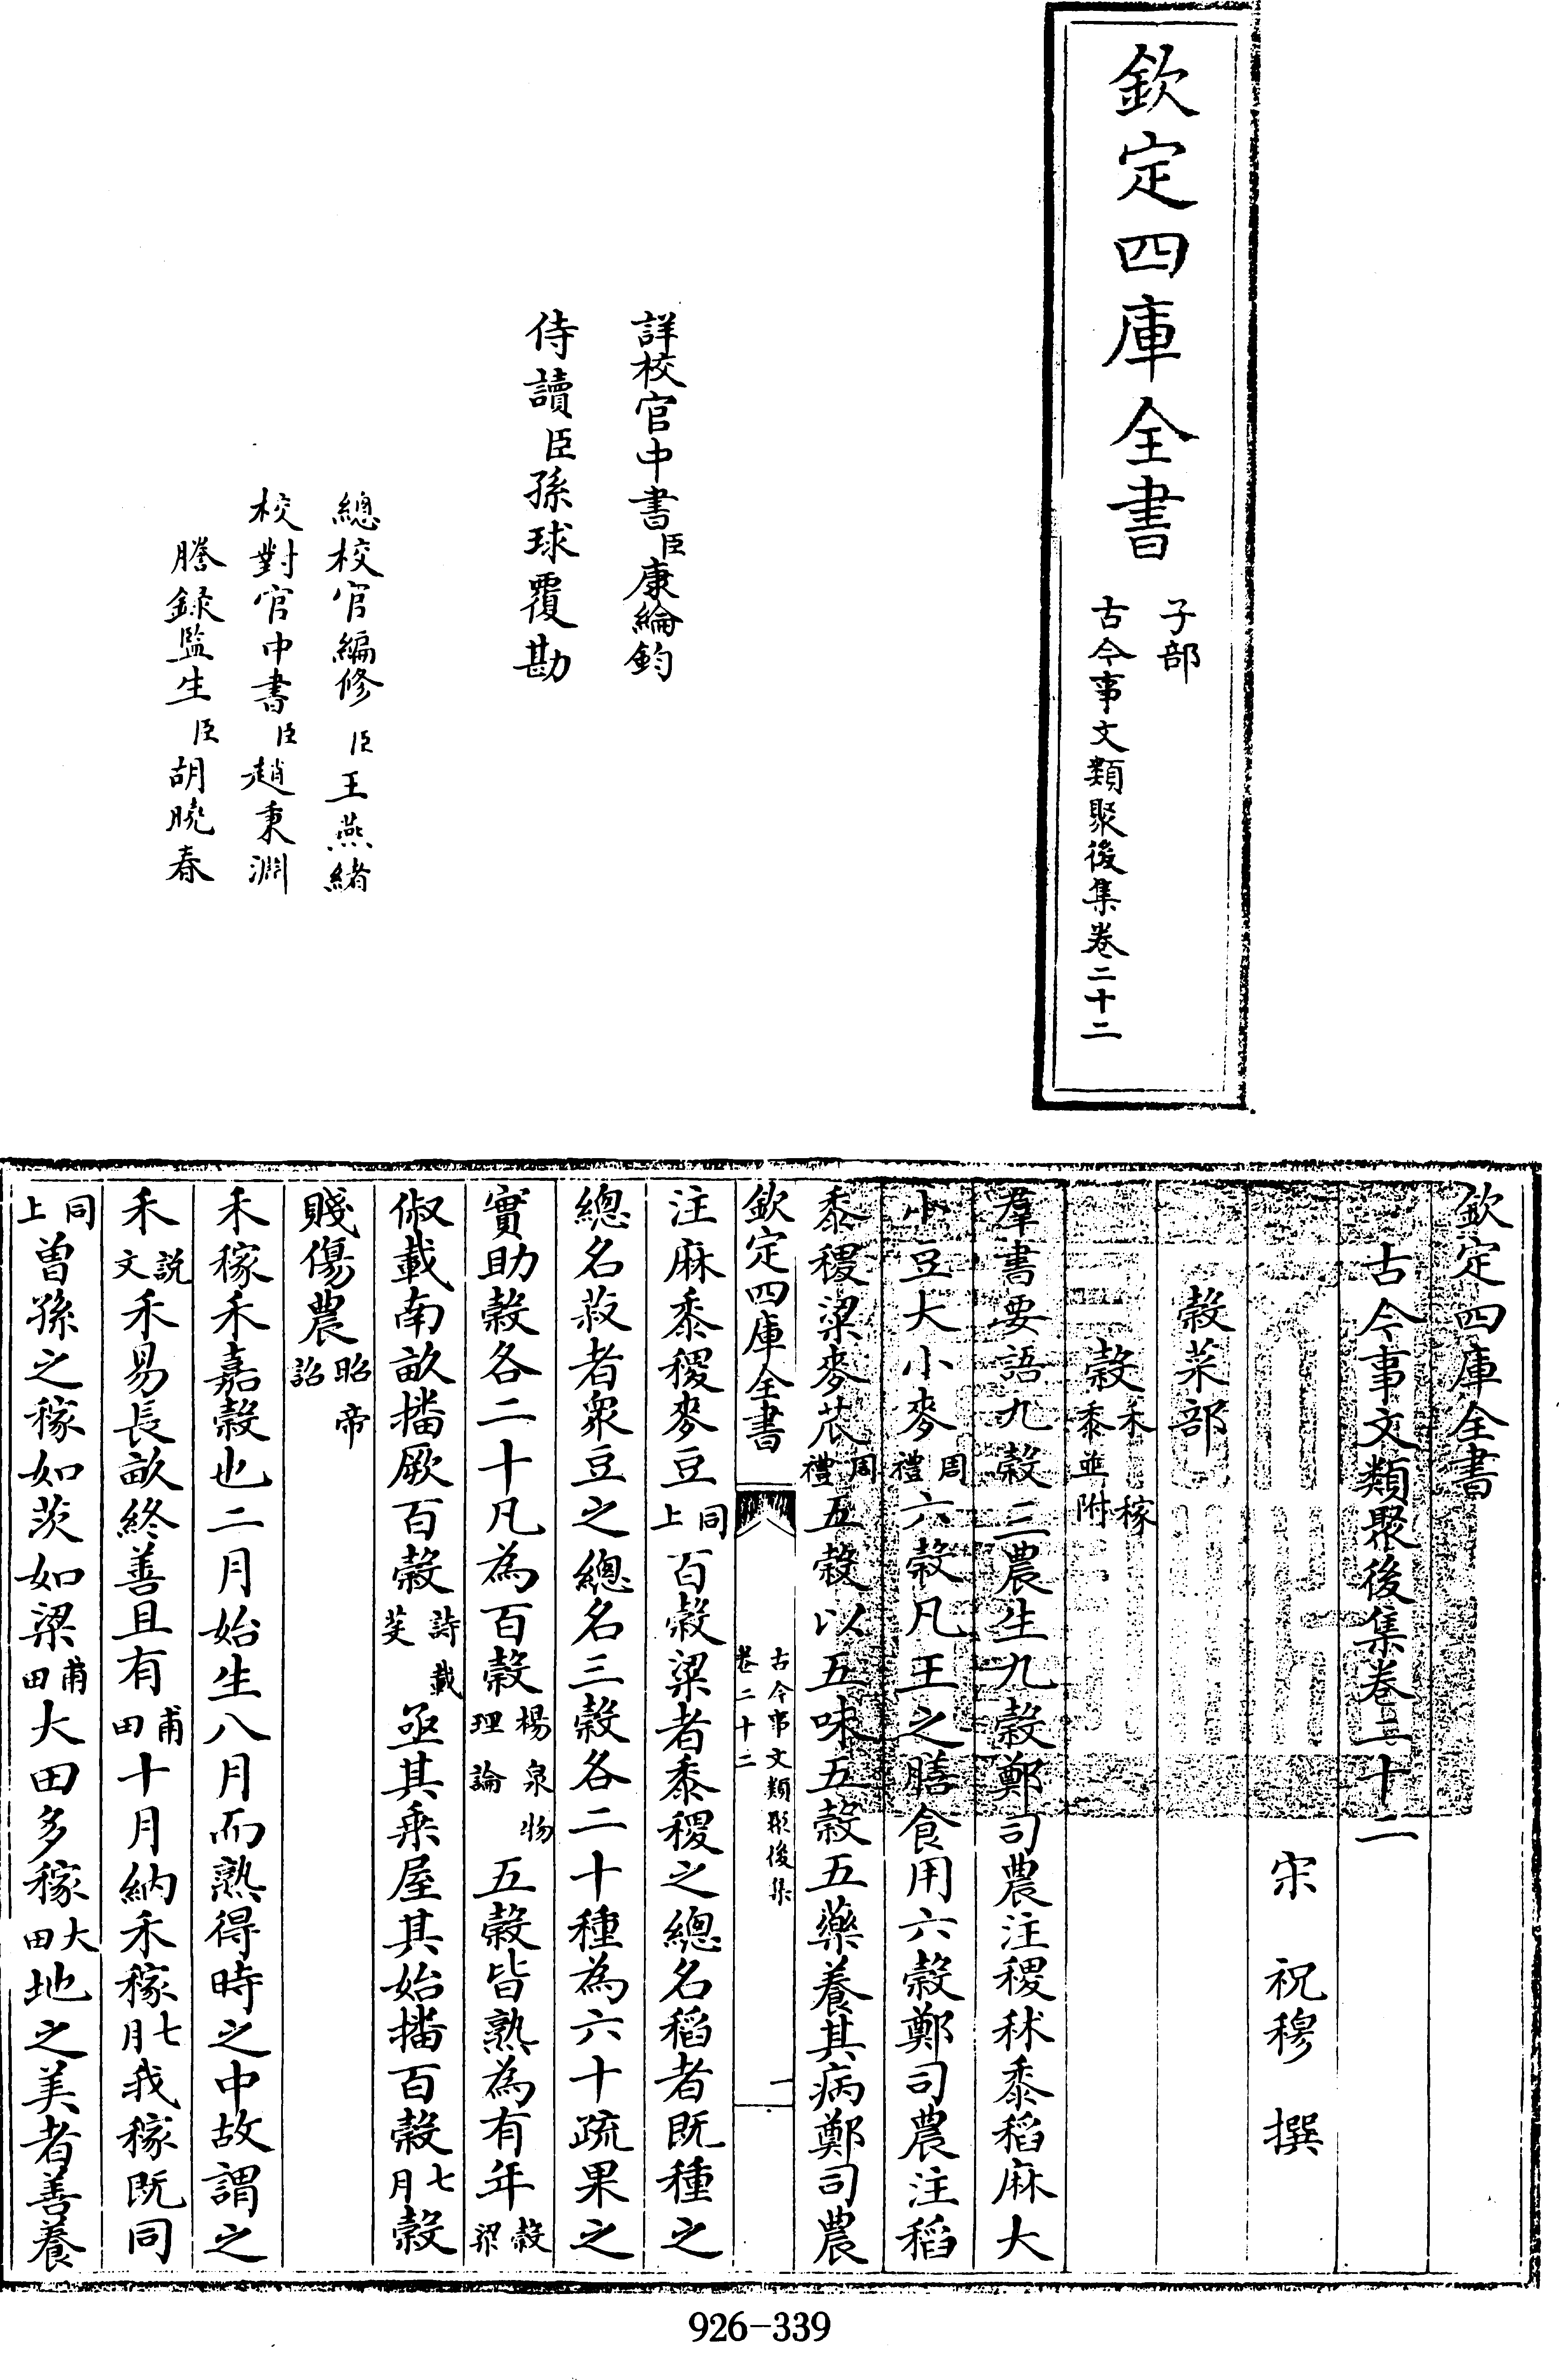 欽定四庫全書
子部
古今事文類聚後集卷二十二
詳校官中書臣康綸鈞
侍讀臣孫球覆勘
總校官編修臣王燕緒
校對官中書臣趙秉淵
謄錄監生臣胡曉春
欽定四庫全書
古今事文類聚後集卷二十二
宋 祝穆 撰
穀菜部
穀禾稼黍並附
羣書要語九穀三農生九穀鄭司農注稷秫黍稻麻大
小豆大小麥周禮六穀凡王之膳食用六穀鄭司農注稻
黍稷粱麥苽周禮五穀以五味五穀五藥養其病鄭司農
欽定四庫全書
古今事文類聚後集
卷二十二
一
注麻黍稷麥豆同上百穀粱者黍稷之總名稻者既種之
總名菽者衆豆之總名三穀各二十種為六十疏果之
實助穀各二十凡為百穀楊泉物理論五穀皆熟為有年穀梁
俶載南畝播厥百穀詩載芟亟其乘屋其始播百穀七月穀
賤傷農昭帝詔
禾稼禾嘉穀也二月始生八月而熟得時之中故謂之
禾説文禾易長畝終善且有甫田十月納禾稼七月我稼既同
同上曽孫之稼如茨如梁甫田大田多稼大田地之美者善養
926-339